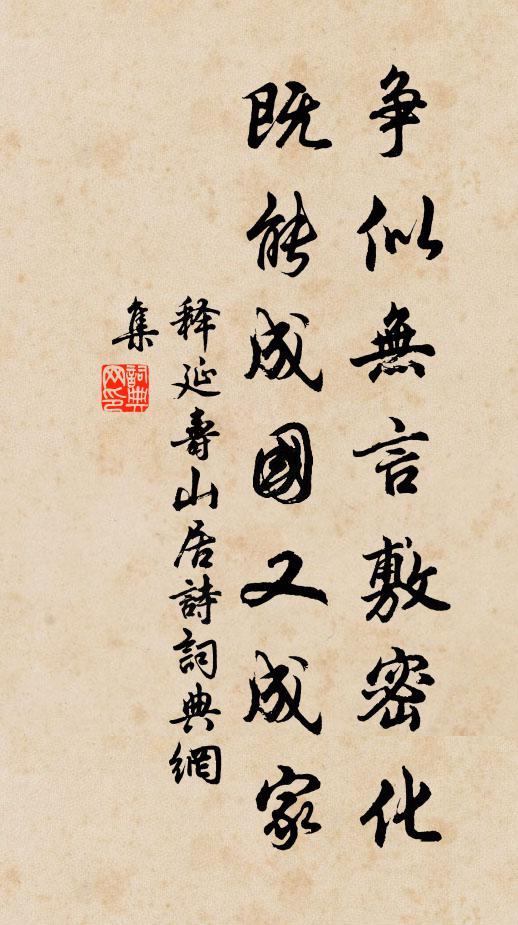 争似無言敷密化
既能成國又成家
释延壽山居詩詞典網
集
詞典網印